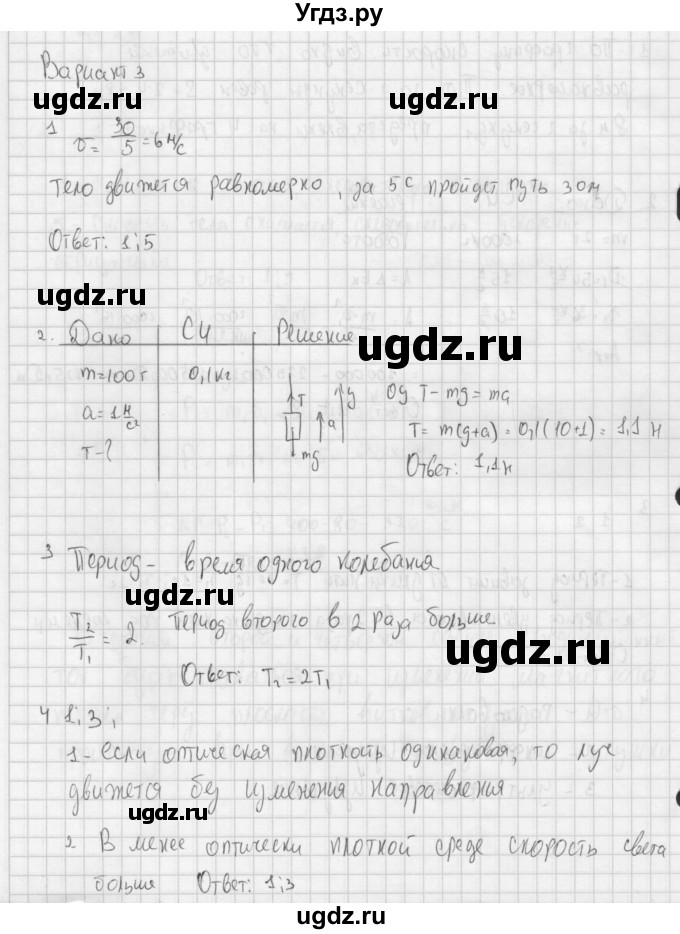 Угдз.ру
Вариант 3
ugdz.ru ugdz.ru
1 υ = 30/5 = 6 м/с
Тело движется равномерно, за 5с пройдет путь 30м
ugdz.ru
Ответ: 1;5
ugdz.ru
2. Дано СИ Решение
ugdz.ru
m=100г 0,1кг T y a mg Oy T - mg = ma
a = 1 м/с² T = m(g+a) = 0,1(10+1) = 1,1 н
T-? Ответ: 1,1н
3 Период - время одного колебания
ugdz.ru
T₂/T₁ = 2. Период второго в 2 раза больше
ugdz.ru
Ответ: T₂ = 2T₁
4 1;3;
1 - если оптическая плотность одинаковая, то луч
движется без изменения направления
ugdz.ru
2 В менее оптически плотной среде скорость света
больше Ответ: 1;3
ugdz.ru
ugdz.ru